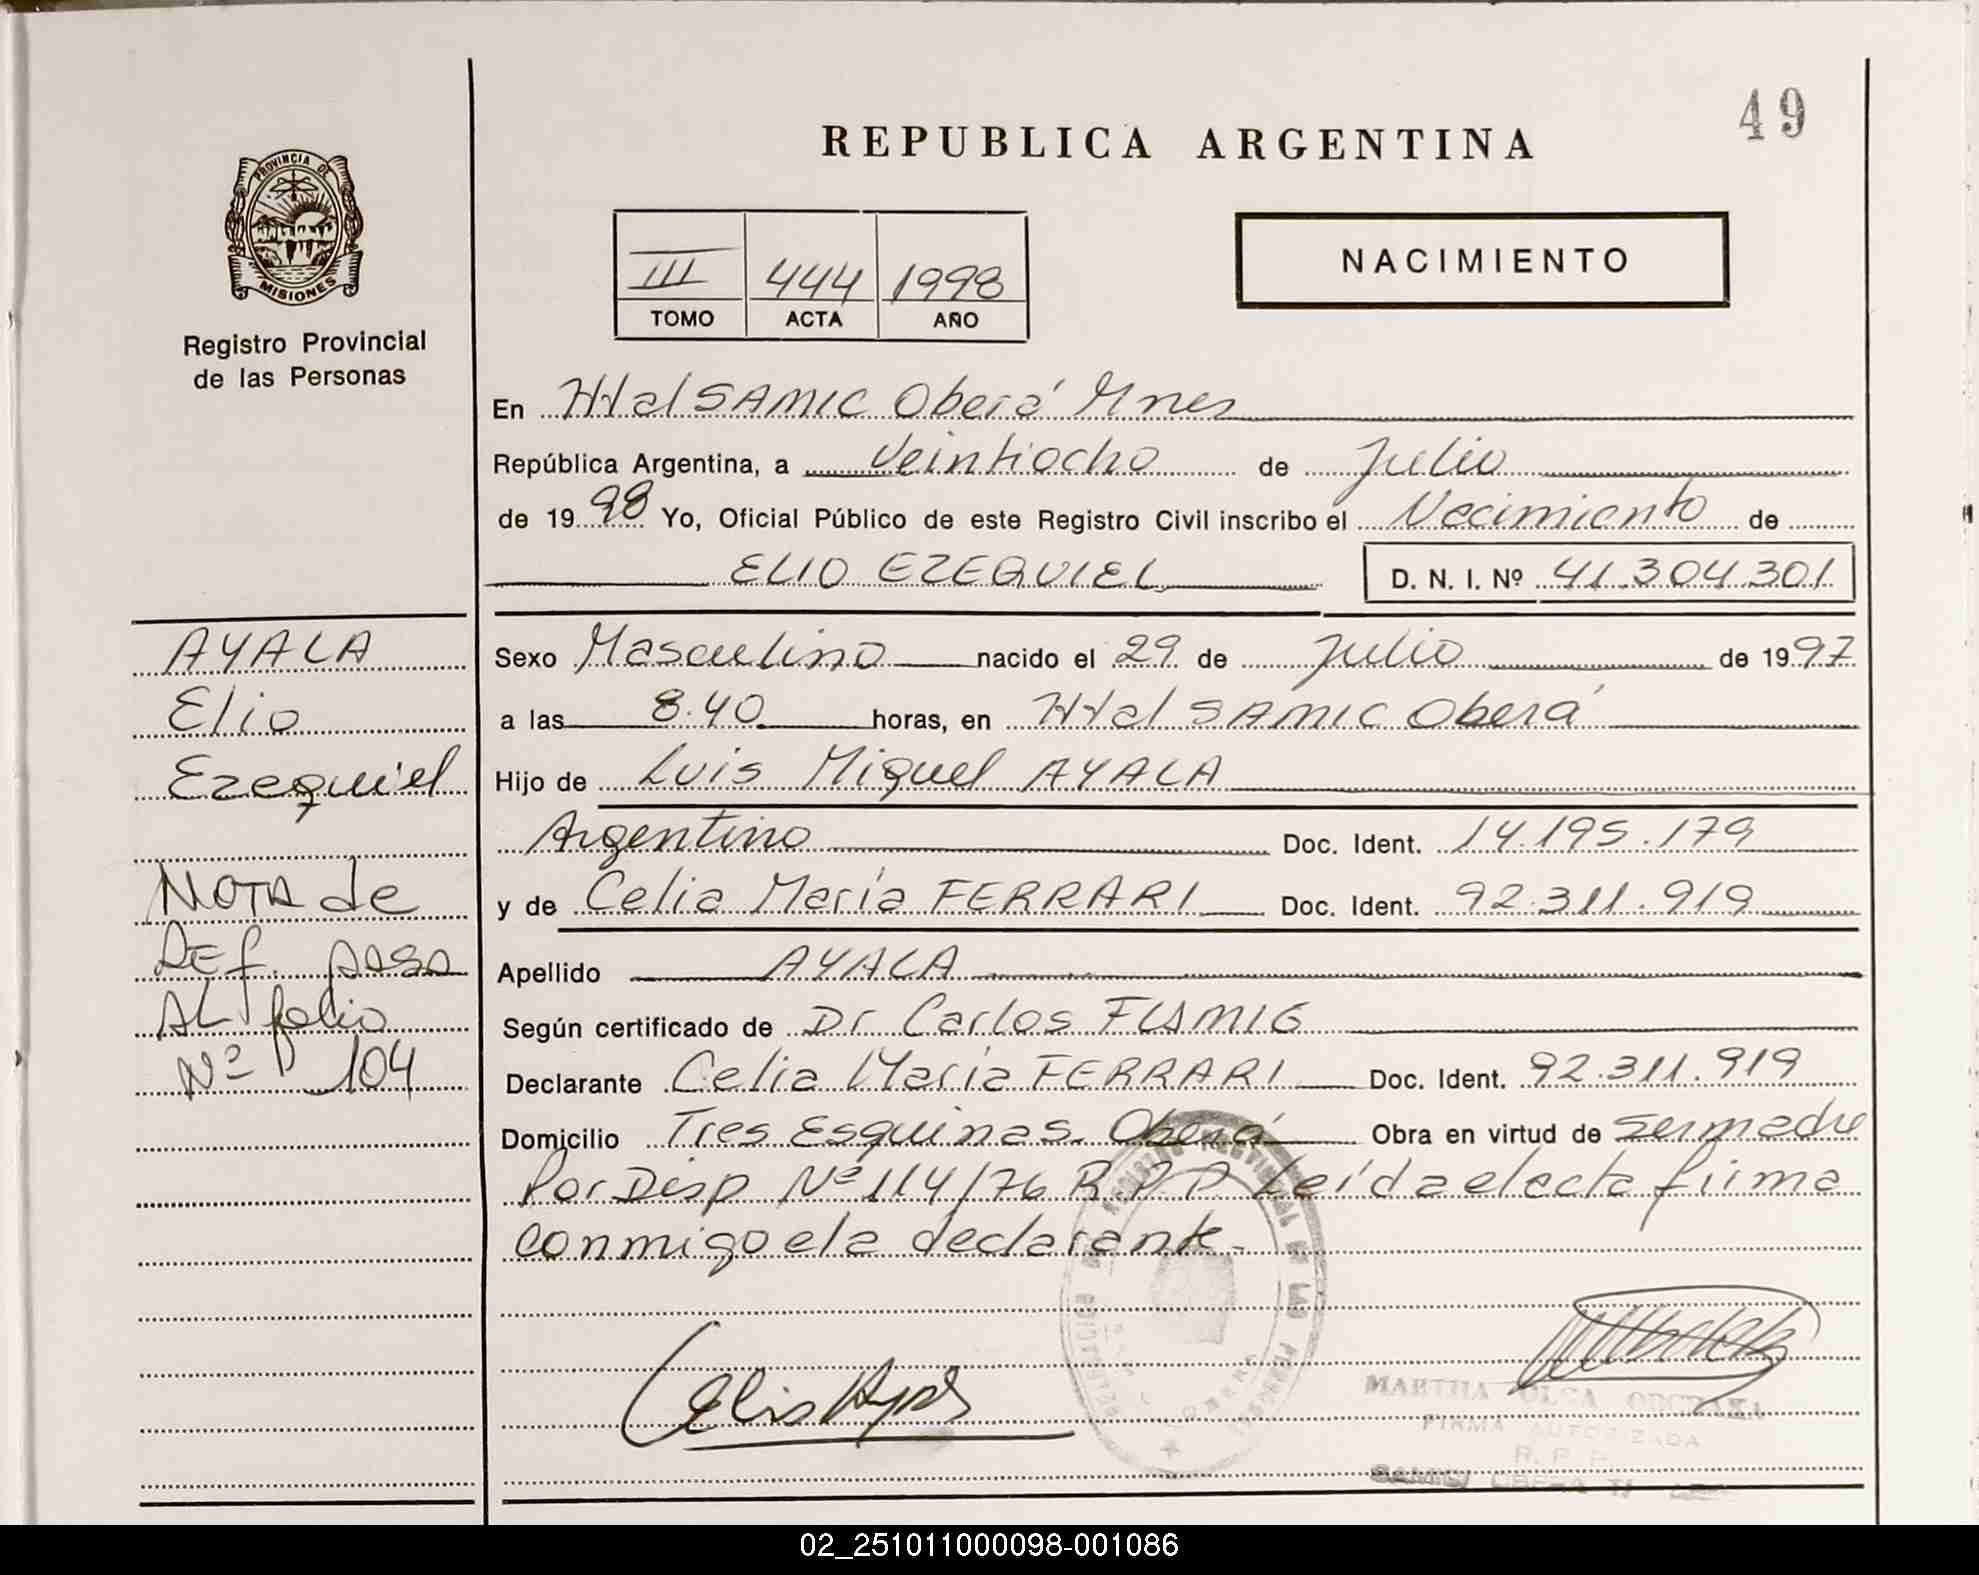 49
REPUBLICA ARGENTINA
PROVINCIA DE
MISIONES
Registro Provincial
de las Personas
III 444 1998
TOMO ACTA AÑO
NACIMIENTO
En Htal SAMIC Oberá Mnes
República Argentina, a Veintiocho de Julio
de 1998 Yo, Oficial Público de este Registro Civil inscribo el Nacimiento de
ELIO EZEQUIEL D. N. I. Nº 41.304.301
Sexo Masculino nacido el 29 de Julio de 1997
a las 8.40 horas, en Htal SAMIC Oberá
Hijo de Luis Miguel AYALA
Argentino Doc. Ident. 14.195.179
y de Celia María FERRARI Doc. Ident. 92.311.919
Apellido AYALA
Según certificado de Dr Carlos FLAMIG
Declarante Celia María FERRARI Doc. Ident. 92.311.919
Domicilio Tres Esquinas. Oberá Obra en virtud de ser madre
Por Disp Nº 114/76 R.P.P. Leída el acta firma
conmigo ela declarante.
AYALA
Elio
Ezequiel
NOTA de
DEF. paso
AL folio
Nº 104
MARTHA OLGA
FIRMA AUTORIZADA
R. P. P.
02_251011000098-001086